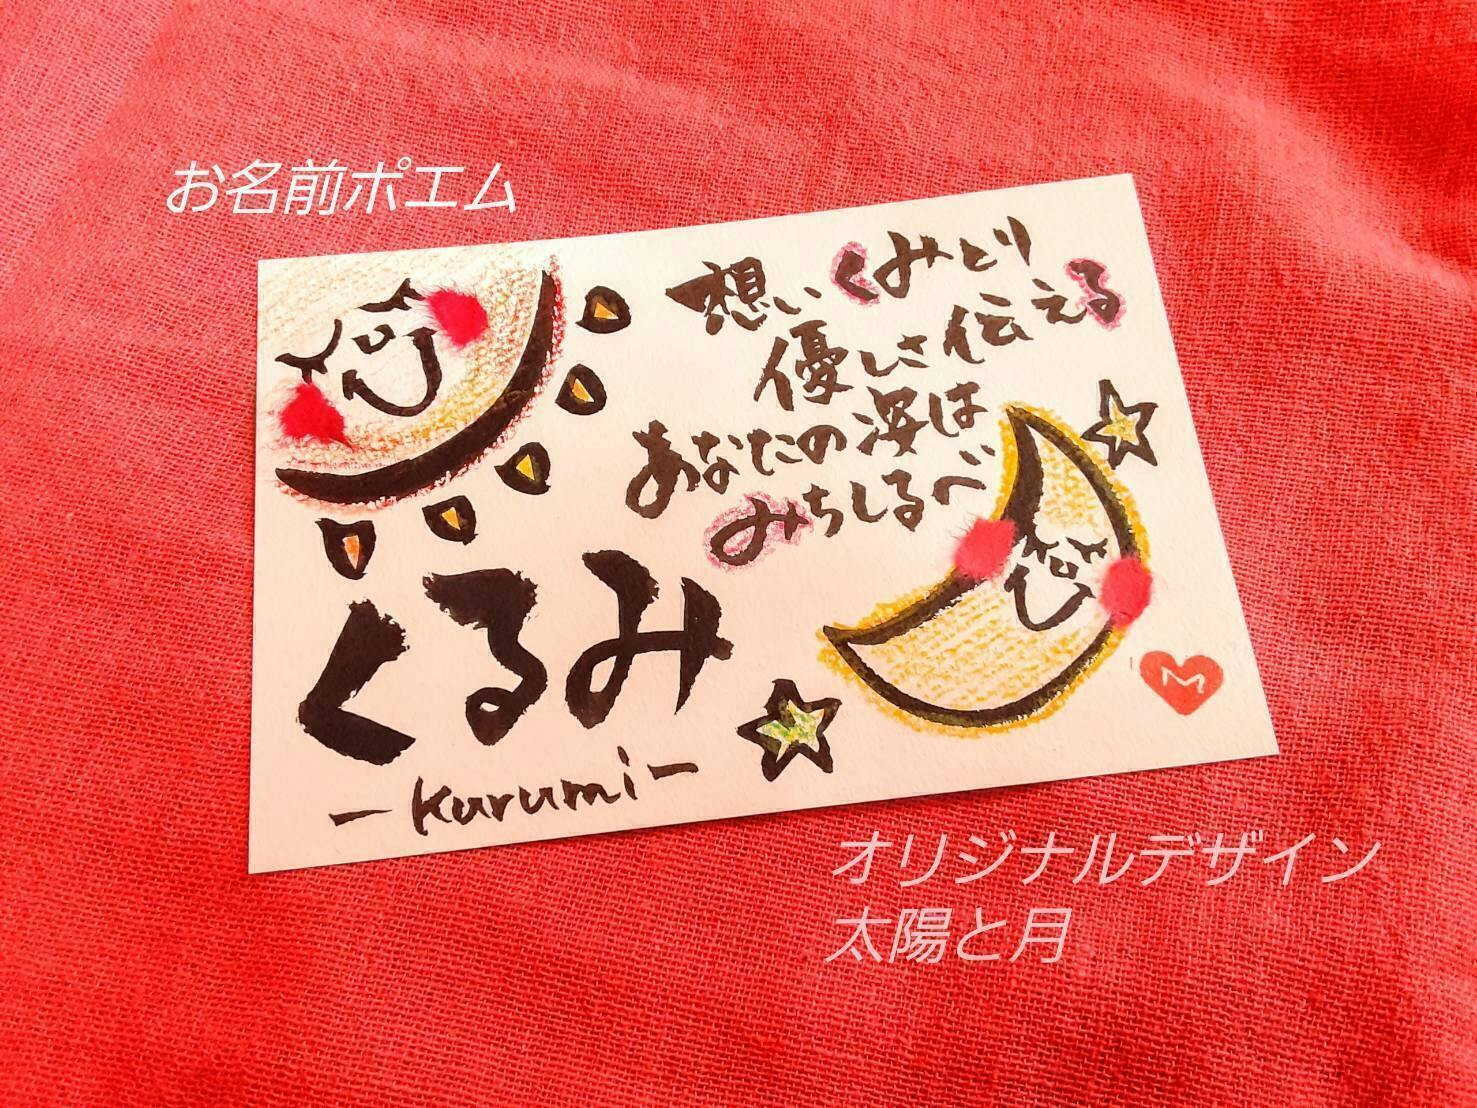 お名前ポエム
想いくみとり
優しさ伝える
あなたの姿は
みちしるべ
くるみ
-kurumi-
M
オリジナルデザイン
太陽と月